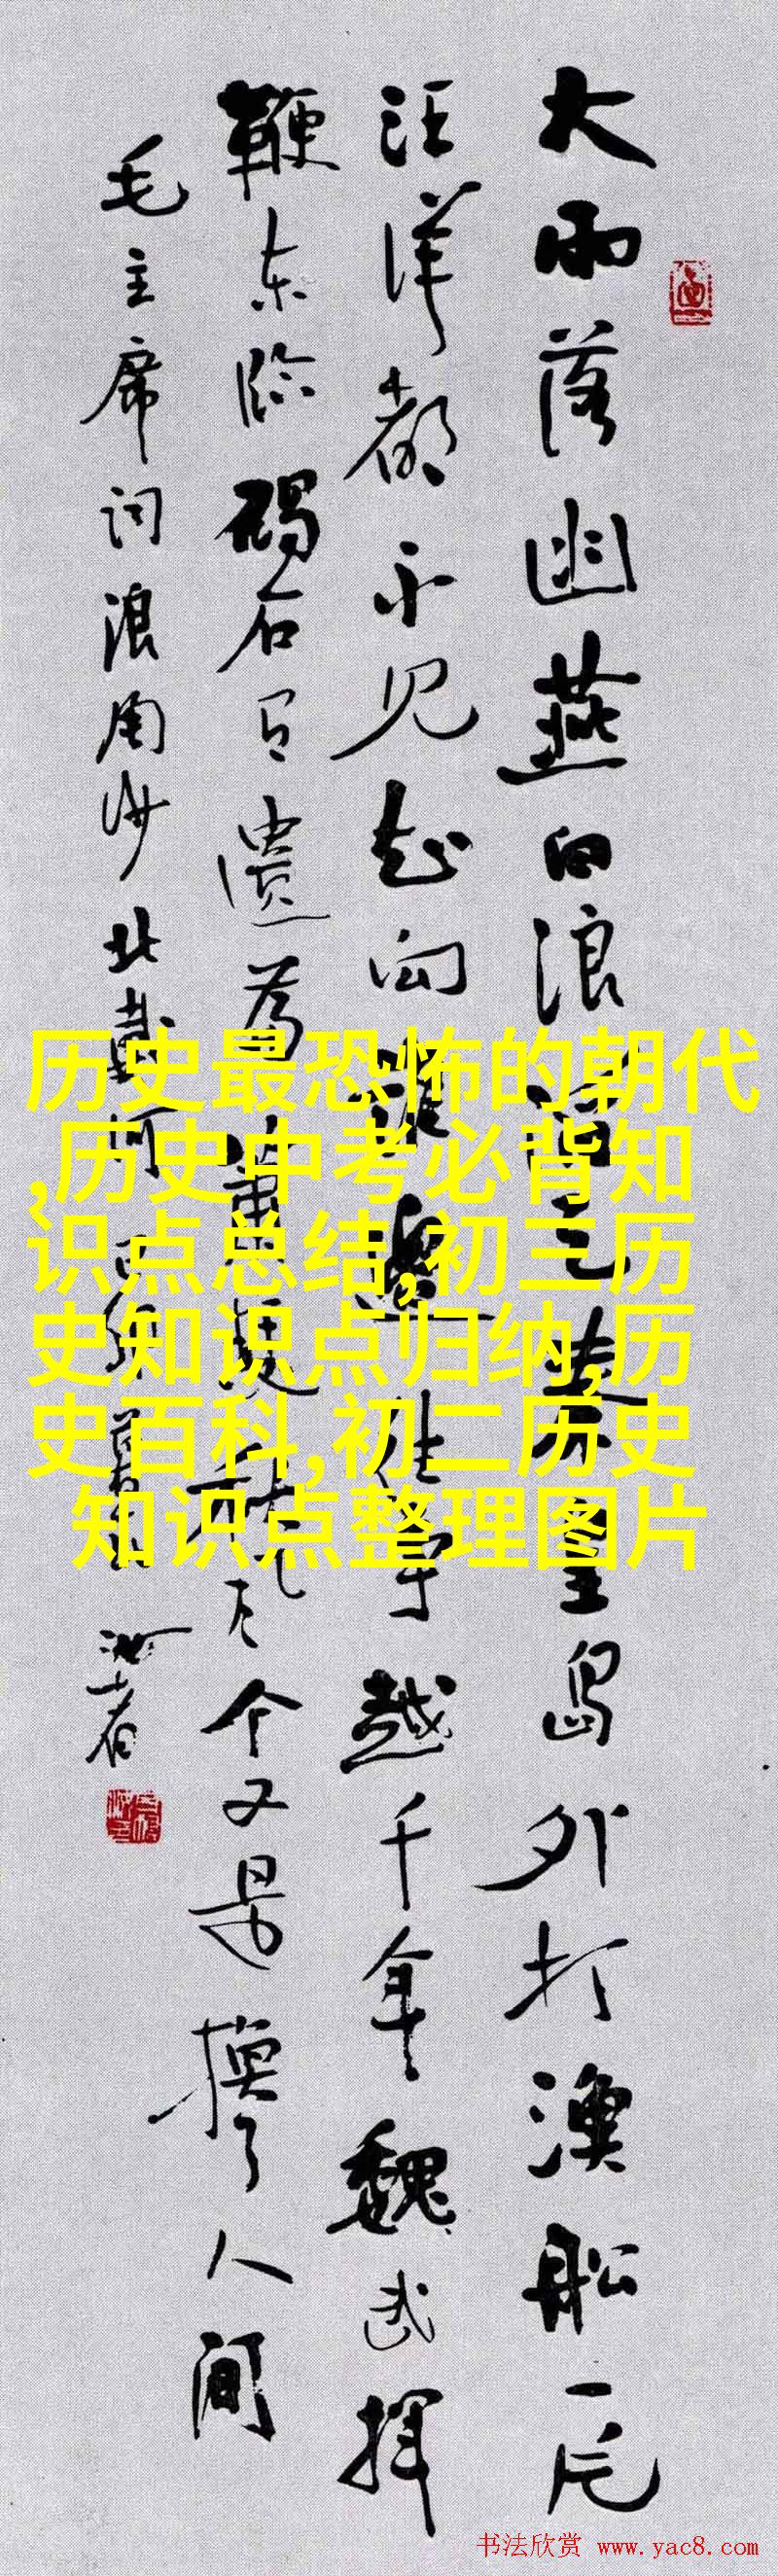 大雨落幽燕白浪滔天秦皇岛外打渔船一片
汪洋都不见知向谁边往事越千年魏武挥
鞭东临碣石有遗篇萧瑟秋风今又是换了人间
毛主席词浪淘沙北戴河
历史最恐怖的朝代
,历史中考必背知
识点总结,初三历
史知识点归纳,历
史百科,初二历史
知识点整理图片
书法欣赏 www.yac8.com